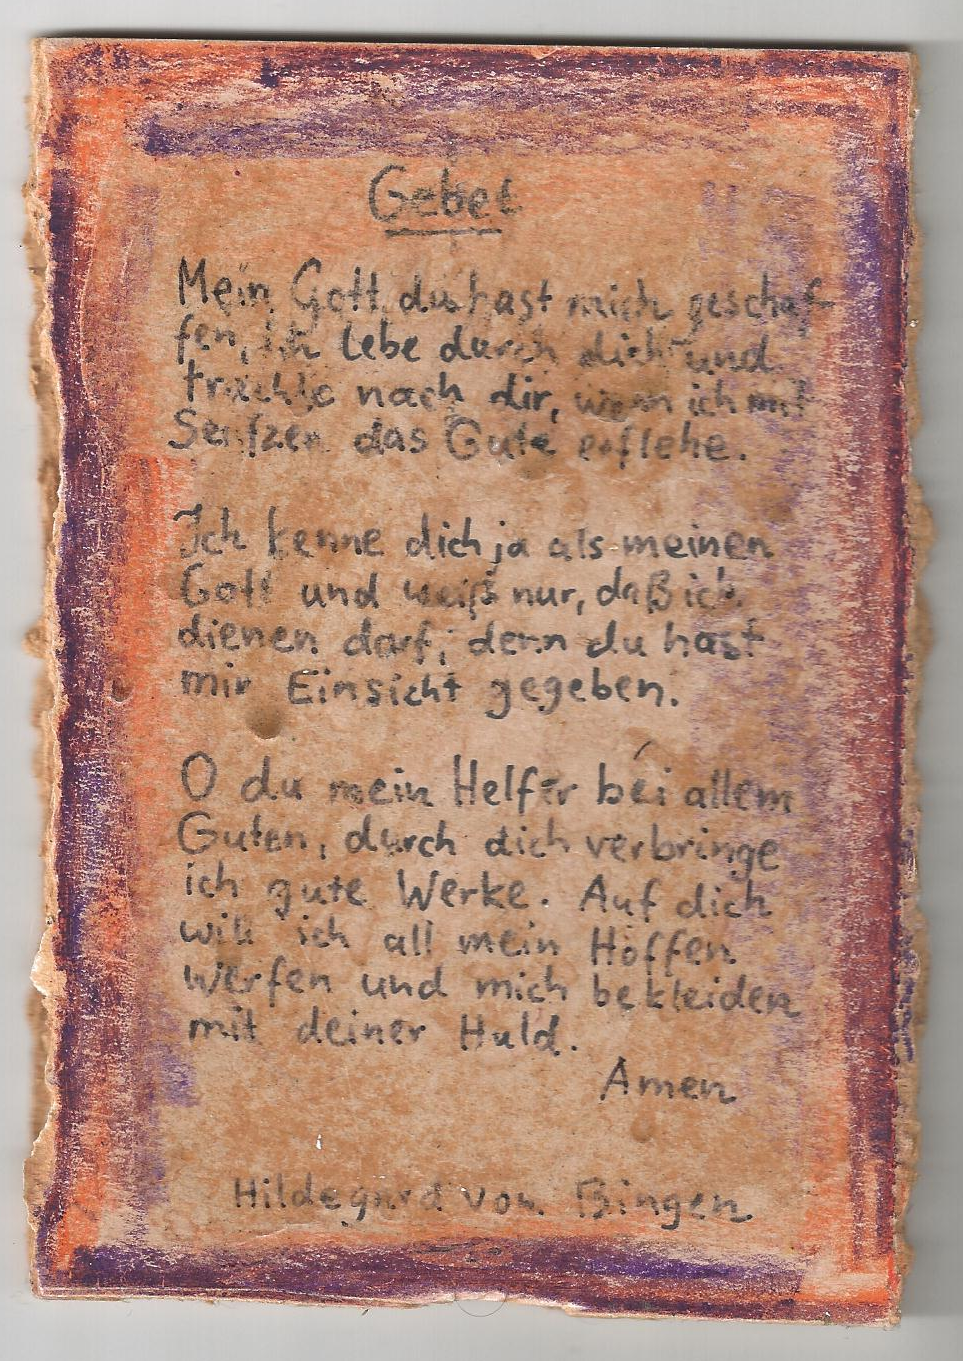 Gebet
Mein Gott, du hast mich geschaf-
fen, ich lebe durch dich und
trachte nach dir, wenn ich mit
Seufzen das Gute erflehe.
Ich kenne dich ja als meinen
Gott und weiß nur, daß ich
dienen darf, denn du hast
mir Einsicht gegeben.
O du mein Helfer bei allem
Guten, durch dich verbringe
ich gute Werke. Auf dich
will ich all mein Hoffen
werfen und mich bekleiden
mit deiner Huld.
Amen
Hildegard von Bingen